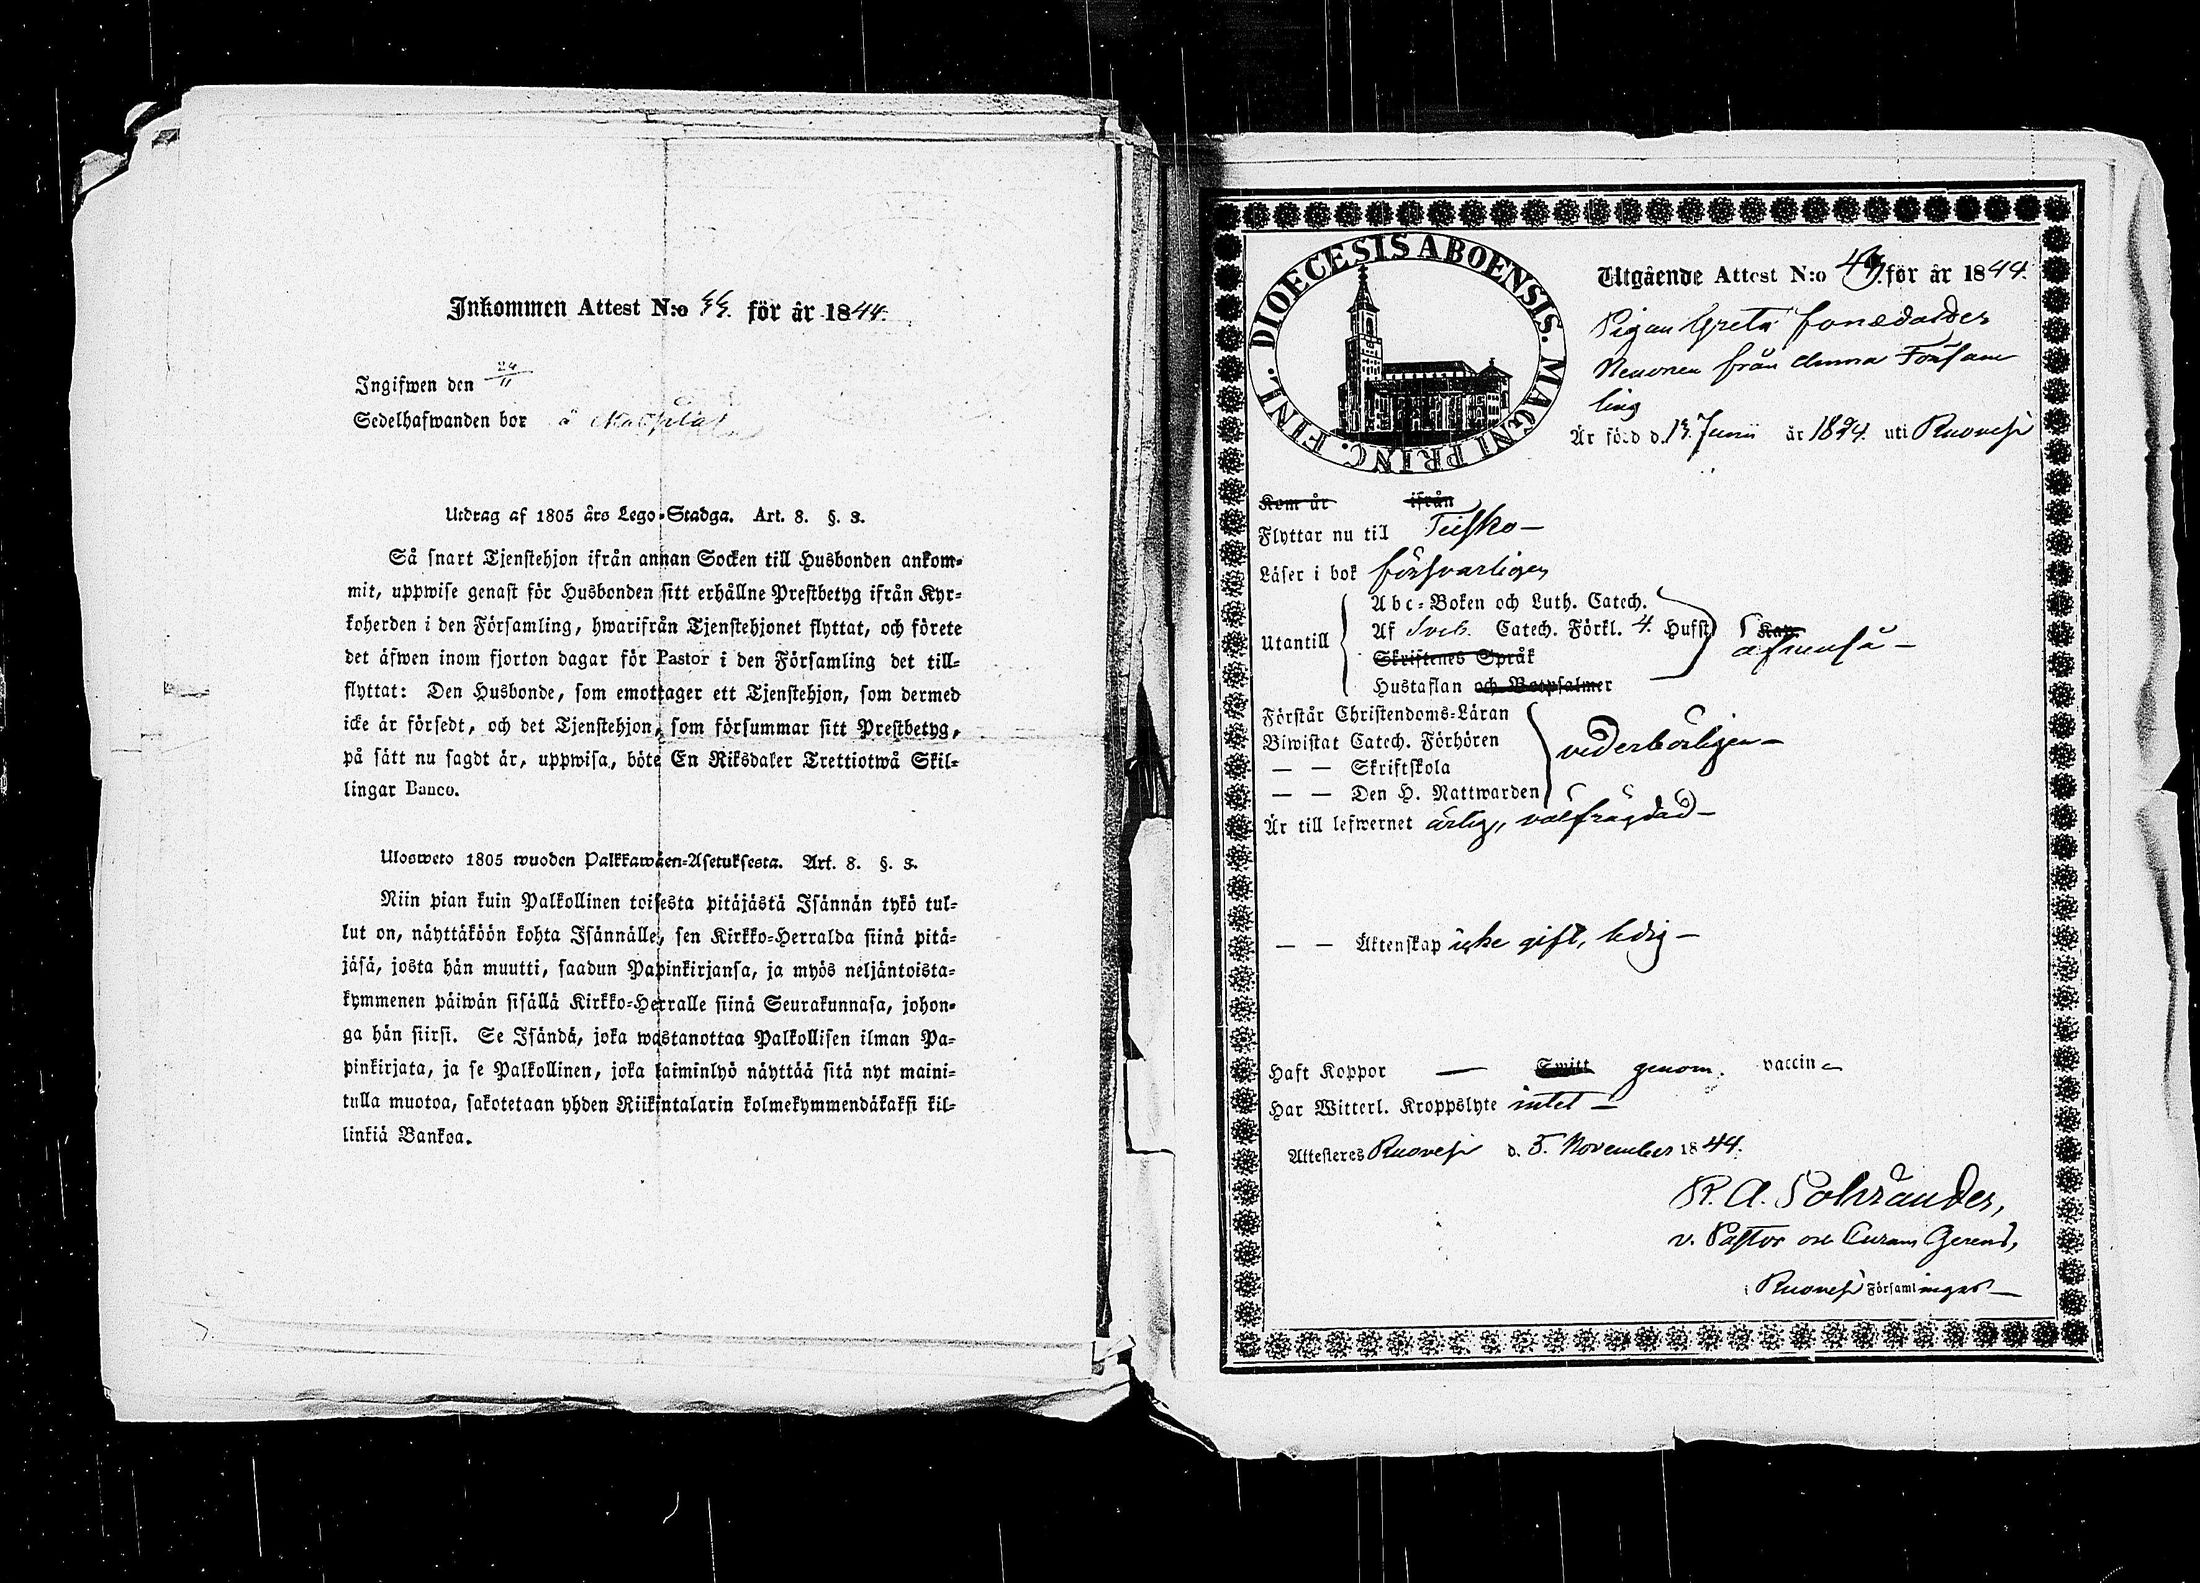 Inkommen Attest N:o för år 1844.
Ingifwen den 24/11
Sedelhafwanden bor å
Utdrag af 1805 års Lego-Stadga. Art. 8. §. 3.
Så snart Tjenstehjon ifrån annan Socken till Husbonden ankom-
mit, uppwise genast för Husbonden sitt erhållne Prestbetyg ifrån Kyr-
koherden i den Församling, hwarifrån Tjenstehjonet flyttat, och förete
det äfwen inom fjorton dagar för Pastor i den Församling det till-
flyttat: Den Husbonde, som emottager ett Tjenstehjon, som dermed
icke är försedt, och det Tjenstehjon, som försummar sitt Prestbetyg,
på sätt nu sagdt är, uppwisa, böte En Riksdaler Trettiotwå Skil-
lingar Banco.
Ulosweto 1805 wuoden Palkkawäen-Asetuksesta. Art. 8. §. 3.
Niin pian kuin Palkollinen toisesta pitäjästä Isännän tykö tul-
lut on, näyttäköön kohta Isännälle, sen Kirkko-Herralda siinä pitä-
jäsä, josta hän muutti, saadun Papinkirjansa, ja myös neljäntoista-
kymmenen päiwän sisällä Kirkko-Herralle siinä Seurakunnasa, johon-
ga hän siirsi. Se Isändä, joka wastanottaa Palkollisen ilman Pa-
pinkirjata, ja se Palkollinen, joka laiminlyö näyttää sitä nyt maini-
tulla muotoa, sakotetaan yhden Riiksintalarin kolmekymmendäkaksi kil-
linkiä Bankoa.
DIOECESIS ABOENSIS. MAGNI PRINC. FINL.
Utgående Attest N:o för år 1844.
Pigan Greta
från denna Försam
ling
Är född d. 13. Junii år 1824. uti Ruovesi
Kom år ifrån
Flyttar nu till Teisko —
Läser i bok försvarligen
Utantill
Abc-Boken och Luth. Catech.
Af Sveb. Catech. Förkl. 4. Hufst. Kap.
Skriftenes Språk afvenså —
Hustaflan och Botpsalmer
Förstår Christendoms-Läran
Biwistat Catech. Förhören vederbörligen —
— — Skriftskola
— — Den H. Nattwarden
Är till lefwernet ärlig, välfrägdad —
— — Äktenskap icke gift, ledig —
Haft Koppor — genom vaccin
Har Witterl. Kroppslyte intet —
Attesteres Ruovesi d. 5. November 1844.
R. A.
v. Pastor och Curam Gerens,
i Ruovesi Församlingar —